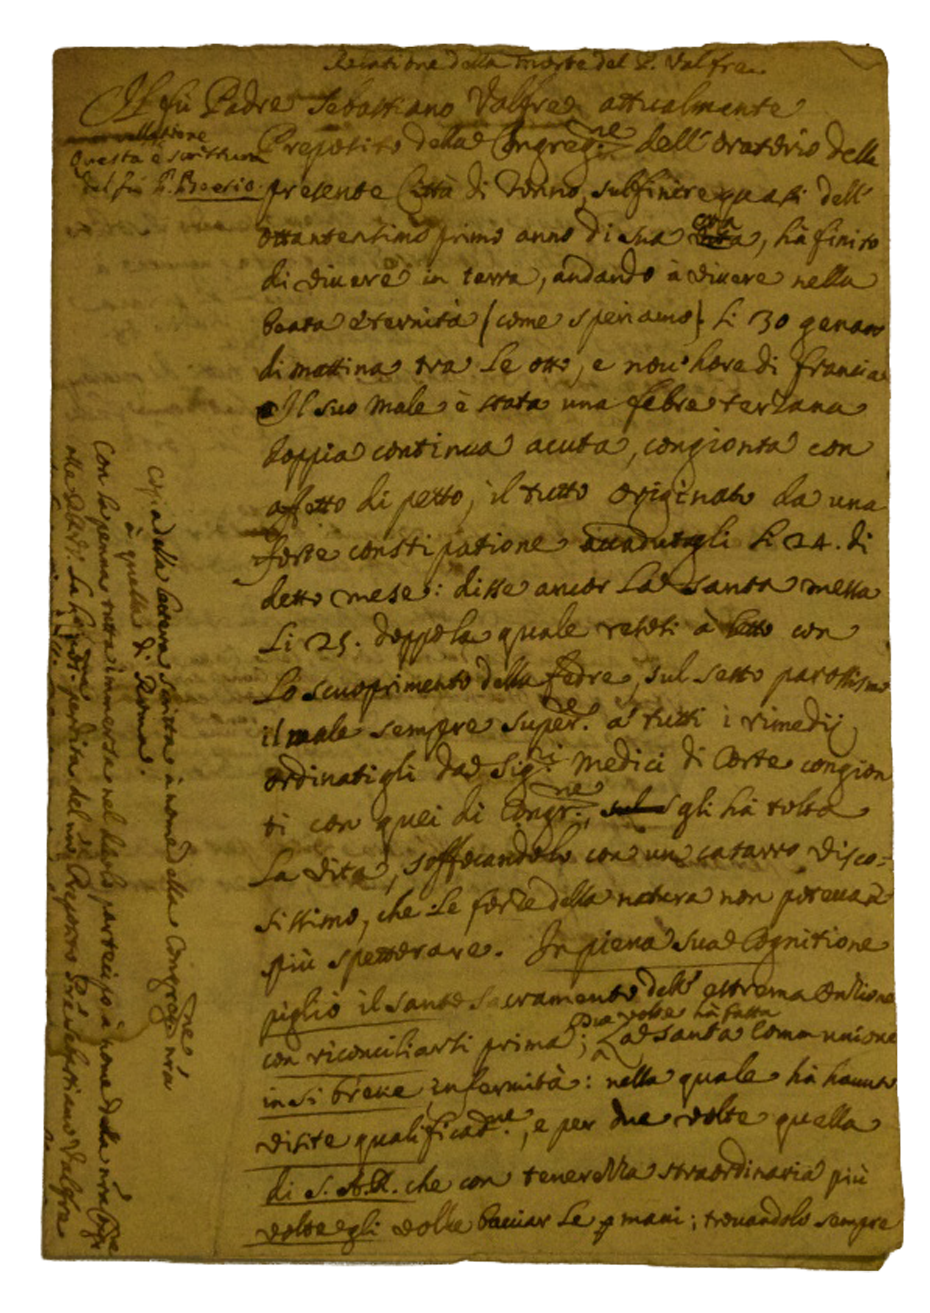 Relatione della morte del P. Valfre
Il fù Padre Sebastiano Valfre attualmente
Preposito della Congreg.ne dell'Oratorio della
Questa è scrittura
del fù P. Boerio.
presente Città di Torino, sul finire quasi dell'
ottantesimo primo anno di sua età, hà finito
di vivere in terra, andando à vivere nella
beata eternità (come speriamo) li 30 genaro
di mattina tra le otto, e nove hore di francia
Il suo male è stata una febre terzana
doppia continua acuta, congionta con
affetto di petto, il tutto originato da una
forte constipatione accadutagli li 24. di
detto mese: disse ancor la santa messa
li 25. doppo la quale restò à letto con
lo scuoprimento della febre, sul setto parossismo
il male sempre super.re a tutti i rimedij
ordinatigli da Sig.ri Medici di Corte congion
ti con quei di Congr.ne, gli hà tolta
la vita, soffocandolo con un catarro visco=
sissimo, che le forze della natura non potevan
più spettorare. In piena sua Cognitione
pigliò il santo sacramento dell'estrema Untione
con riconciliarsi prima; due volte hà fatta la santa Communione
in si breve infermità: nella quale hà havute
visite qualificat.me, e per due volte quella
di S. A. R. che con tenerezza straordinaria più
volte gli volle bacciar le mani; trovandolo sempre
Copia della lettera scritta à nome della Congreg.ne nra
à quella di Roma.
Con la penna tutta immersa nel duolo partecipo à nome della nra Congr.ne
alla SS. VV. la perdita del nro Preposito P.re Sebastiano Valfre